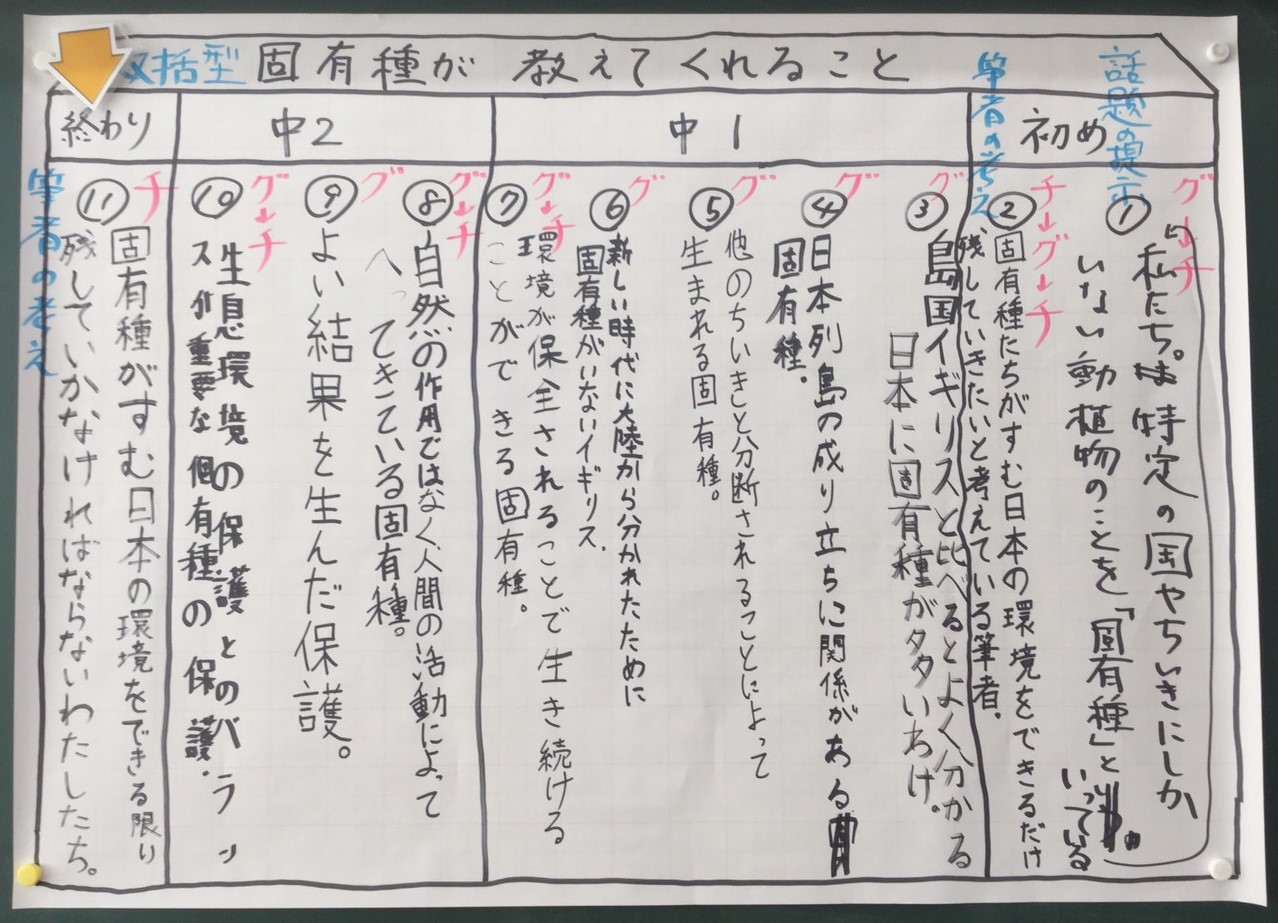 双括型 固有種が 教えてくれること
話題の提示
筆者の考え
初め
中1
中2
終わり
グ→チ
①
私たちは特定の国やちいきにしか
いない動植物のことを「固有種」と
いっている
チ→グ→チ
②
固有種たちがすむ日本の環境をできるだけ
残していきたいと考えている筆者.
グ
③
島国イギリスと比べるとよく分かる
日本に固有種がタタいわけ。
グ
④
日本列島の成り立ちに関係がある
固有種.
グ
⑤
他のちいきと分断されることによって
生まれる固有種。
グ
⑥
新しい時代に大陸から分かれたために
固有種がいないイギリス.
グ→チ
⑦
環境が保全されることで生き続ける
ことができる固有種。
グ→チ
⑧
自然の作用ではなく人間の活動によって
へってきている固有種。
グ
⑨
よい結果を生んだ保護。
グ→チ
⑩
生息環境の保護とのバランッ
スが重要な個有種の保護.
チ
⑪
固有種がすむ日本の環境をできる限り
残していかなければならないわたしたち。
筆者の考え